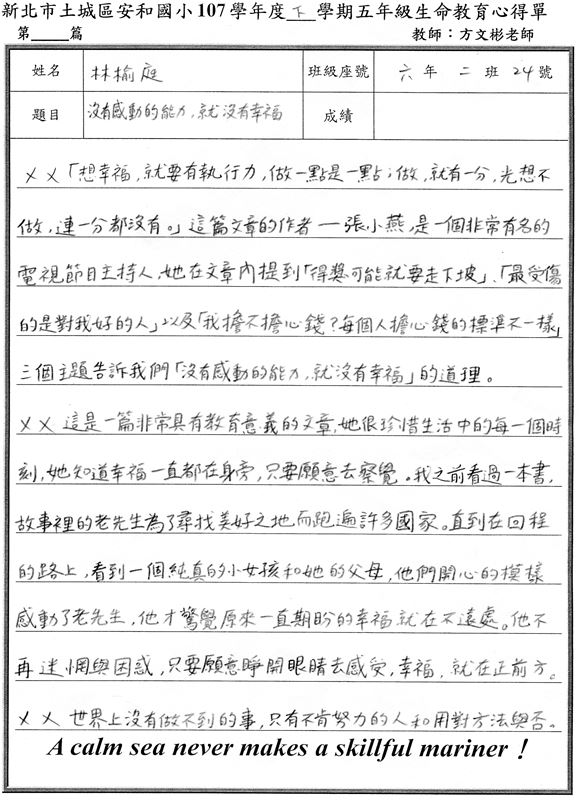 新北市土城區安和國小107學年度下學期五年級生命教育心得單
第____篇 教師：方文彬老師
姓名 林榆庭 班級座號 六年二班24號
題目 沒有感動的能力，就沒有幸福 成績
××「想幸福，就要有執行力，做一點是一點；做，就有一分，光想不
做，連一分都沒有。」這篇文章的作者—張小燕，是一個非常有名的
電視節目主持人，她在文章內提到「得獎可能就要走下坡」、「最受傷
的是對我好的人」以及「我擔不擔心錢？每個人擔心錢的標準不一樣」
三個主題告訴我們「沒有感動的能力，就沒有幸福」的道理。
××這是一篇非常具有教育意義的文章，她很珍惜生活中的每一個時
刻，她知道幸福一直都在身旁，只要願意去察覺。我之前看過一本書，
故事裡的老先生為了尋找美好之地而跑遍許多國家。直到在回程
的路上，看到一個純真的小女孩和她的父母，他們開心的模樣
感動了老先生，他才驚覺原來一直期盼的幸福就在不遠處。他不
再迷惘與困惑，只要願意睜開眼睛去感受，幸福，就在正前方。
××世界上沒有做不到的事，只有不肯努力的人和用對方法與否。
A calm sea never makes a skillful mariner！